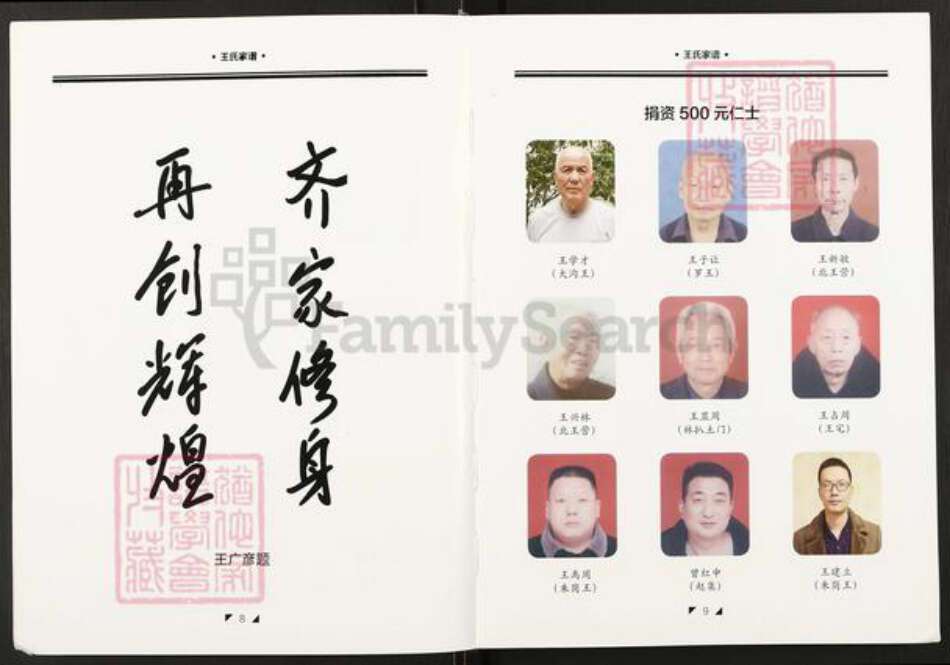 • 王氏家谱 •
齐家修身
再创辉煌
王广彦题
8
• 王氏家谱 •
捐资 500 元仁士
王学才
(大沟王)
王于让
(罗王)
王新敏
(北王营)
王兴林
(北王营)
王显周
(林扒土门)
王占周
(王宅)
王禹周
(朱岗王)
曾红申
(赵集)
王建立
(朱岗王)
9
FamilySearch